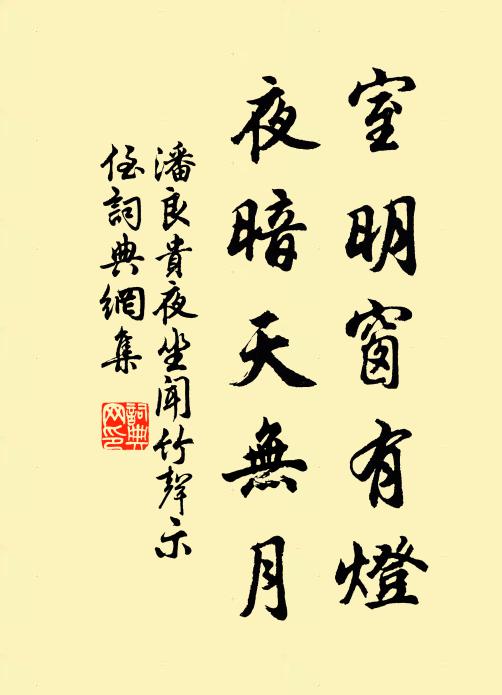 室明窗有燈
夜暗天無月
潘良貴夜坐聞竹聲示
侄詞典網集
詞典
网印